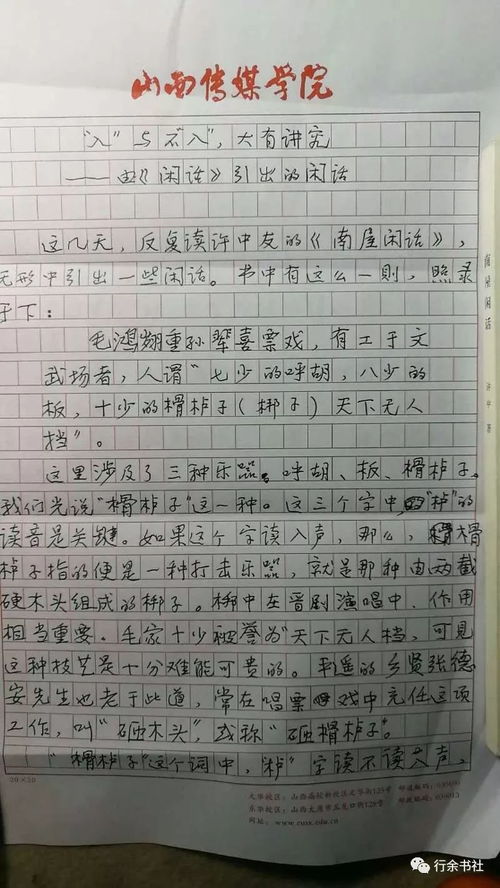 山西传媒学院
“入”与“不入”，大有讲究
——由《闲话》引出的闲话
这几天，反复读许中友的《南屋闲话》，
无形中引出一些闲话。书中有这么一则，照录
于下：
毛鸿翙重孙辈喜票戏，有工于文
武场者，人谓“七少的呼胡，八少的
板，十少的榾栌子（梆子）天下无人
挡”。
这里涉及了三种乐器。呼胡、板、榾栌子。
我们先说“榾栌子”这一种。这三个字中，“栌”的
读音是关键。如果这个字读入声，那么，榾
栌子指的便是一种打击乐器，就是那种由两截
硬木头组成的梆子。梆子在晋剧演唱中，作用
相当重要。毛家十少被誉为“天下无人挡，可见
这种技艺是十分难能可贵的。平遥的乡贤张德
安先生也老于此道，常在唱票戏中充任这项
工作，叫“砸木头”，或称“砸榾栌子”。
“榾栌子”这个词中，“栌”字读不读入声，
20×20
网址：www.cusx.edu.cn
南屋闲话
行余书社